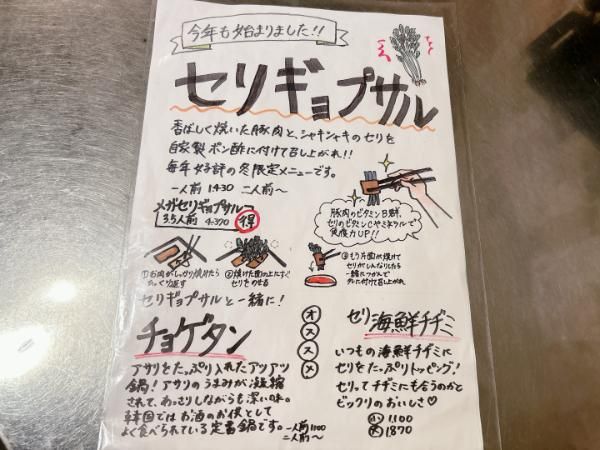 今年も始まりました!!
セリギョプサル
香ばしく焼いた豚肉と、シャキシャキのセリを
自家製ポン酢に付けて召し上がれ!!
毎年好評の冬限定メニューです。
一人前 1430 二人前〜
メガセリギョプサル
3.5人前 4370
得
豚肉のビタミンB群、
セリのビタミンCやミネラルで
免疫力UP!!
①お肉がしっかり焼けたら
ひっくり返す
②焼けた面の上にすぐ
セリをのせる
③もう片面が焼けて
セリがしんなりしたら
一緒につかんで
タレに付けて召し上がれ
セリギョプサルと一緒に!
チョゲタン
オススメ
アサリをたっぷり入れたアツアツ
鍋!アサリのうまみが凝縮
されて、あっさりしながらも深い味。
韓国ではお酒のお供として
よく食べられている定番鍋です。一人前1100
二人前〜
セリ海鮮チヂミ
いつもの海鮮チヂミに
セリをたっぷりトッピング!
セリってチヂミにも合うのかと
ビックリのおいしさ♡
小 1100
大 1870